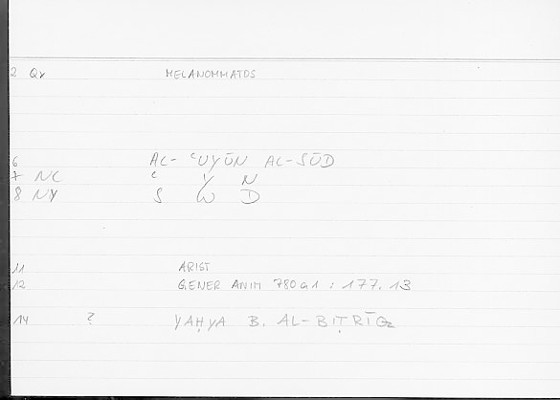 2 Qv MELANOMMATOS
6 AL-ʿUYŪN AL-SŪD
7 NC ʿ Y N
8 NY S W D
11 ARIST
12 GENER ANIM 780a1 : 177.13
14 ? YAḤYA B. AL-BIṬRĪQ